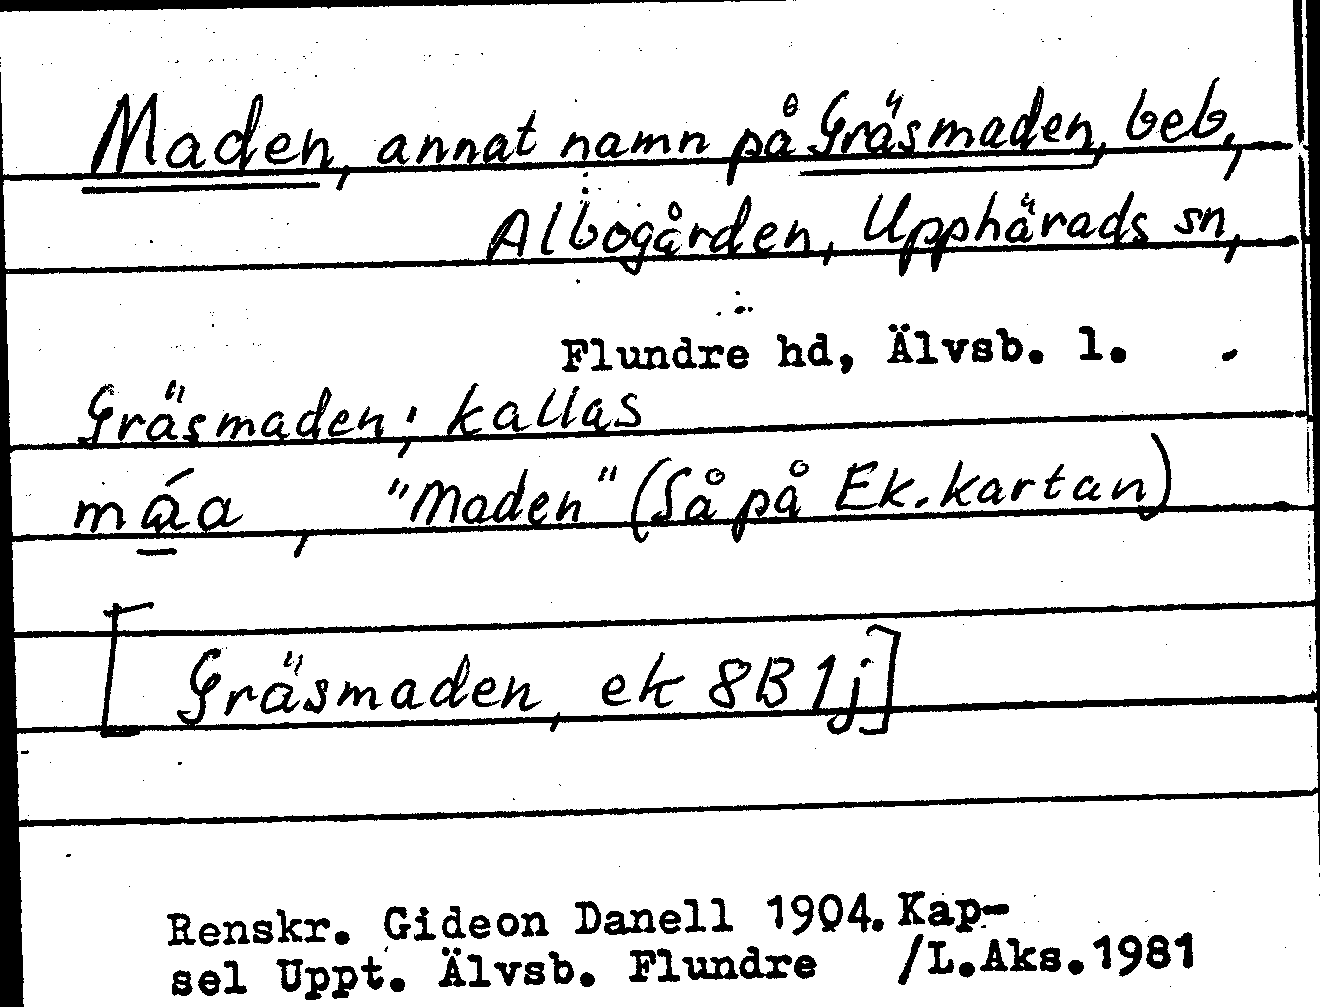 Maden, annat namn på Gräsmaden, beb.,
Albogården, Upphärads sn,
Flundre hd, Älvsb. l.
Gräsmaden; kallas
máa, "Maden" (Så på Ek.kartan)
[Gräsmaden, ek 8B 1j]
Renskr. Gideon Danell 1904. Kap-
sel Uppt. Älvsb. Flundre /L.Aks.1981